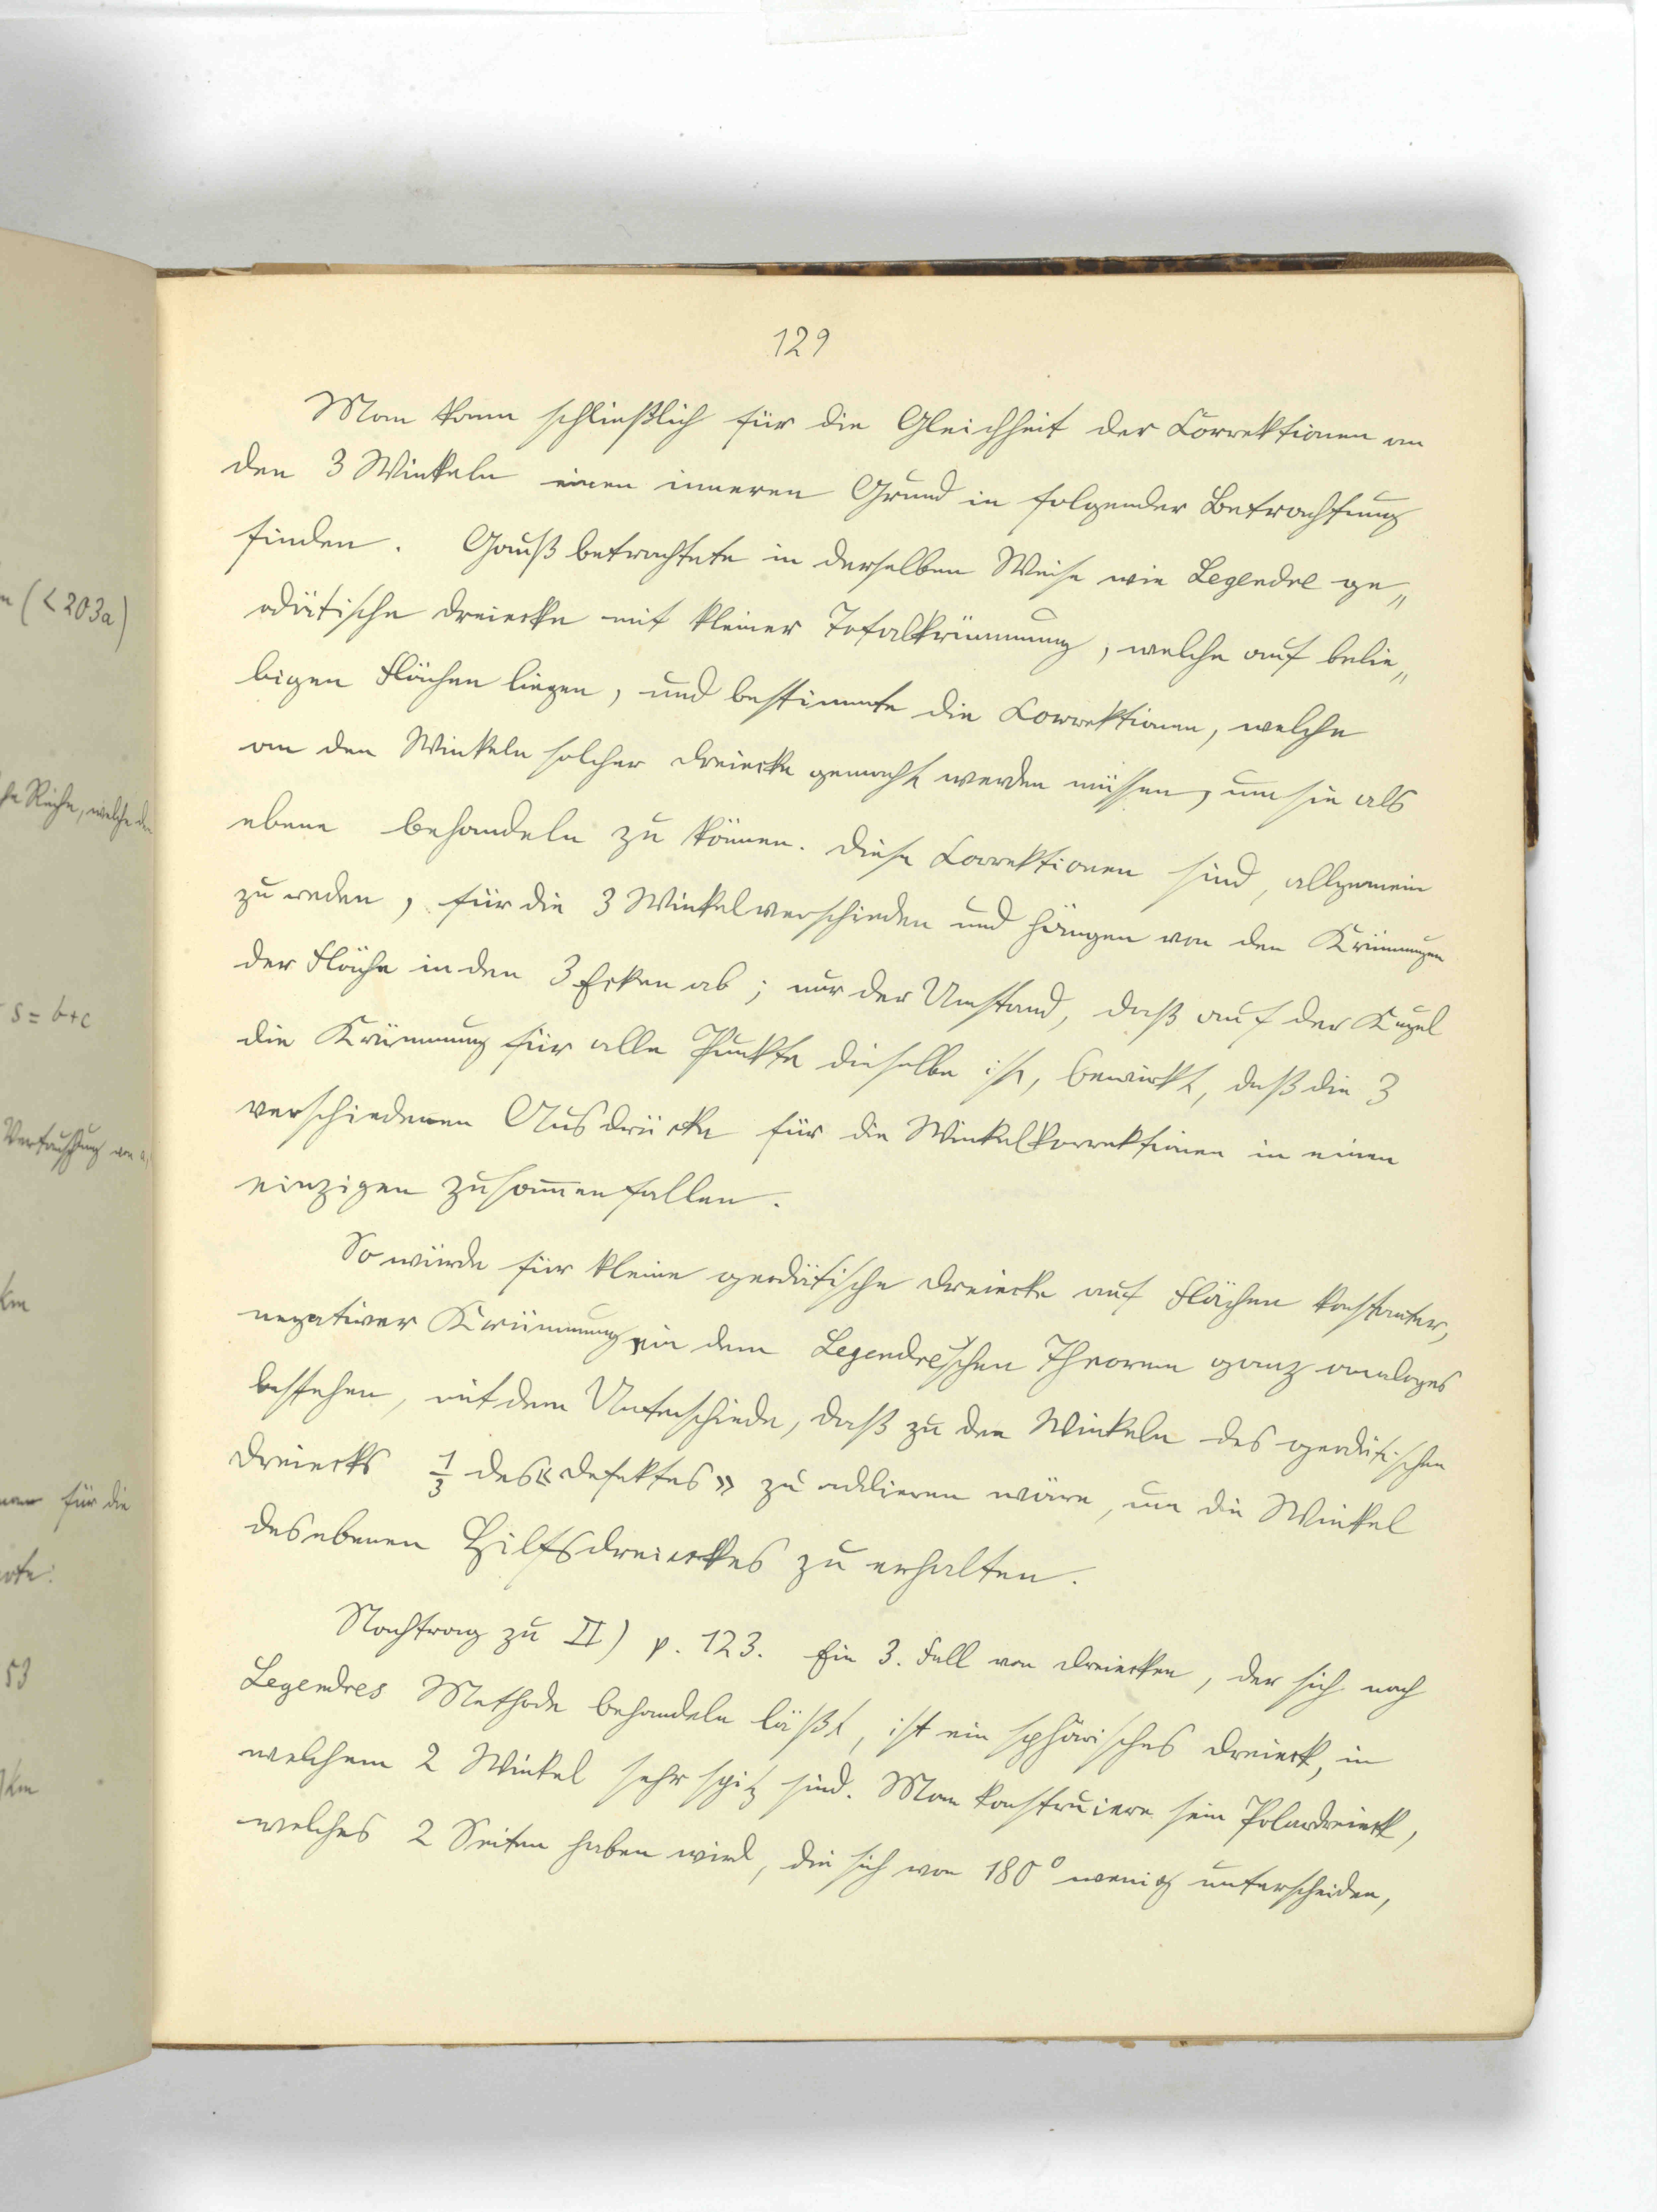 129
Man kann schließlich für die Gleichheit der Correktionen an
den 3 Winkeln einen inneren Grund in folgender Betrachtung
finden. Gauß betrachtete in derselben Weise wie Legendre ge„
odätische Dreiecke mit kleiner Totalkrümmung, welche auf belie„
bigen Flächen liegen, und bestimmte die Correktionen, welche
an den Winkeln solcher Dreiecke gemacht werden müssen, um sie als
ebene behandeln zu können. Diese Correktionen sind, allgemein
zu reden, für die 3 Winkel verschieden und hängen von den Krümmungen
der Fläche in den 3 Ecken ab; nur der Umstand, daß auf der Kugel
die Krümmung für alle Punkte dieselbe ist, bewirkt, daß die 3
verschiedenen Ausdrücke für die Winkelkorrektionen in einen
einzigen zusammenfallen.
So würde für kleine geodätische Dreiecke auf Flächen konstanter,
negativer Krümmung ein dem Legendre'schen Theorem ganz analoges
bestehen, mit dem Unterschiede, daß zu den Winkeln des geodätischen
Dreiecks 1/3 des «Defektes» zu addieren wäre, um die Winkel
des ebenen Hilfsdreieckes zu erhalten.
Nachtrag zu II) p. 123. Ein 3. Fall von Dreiecken, der sich nach
Legendres Methode behandeln läßt, ist ein sphärisches Dreieck, in
welchem 2 Winkel sehr spitz sind. Man konstruiere sein Polardreieck,
welches 2 Seiten haben wird, die sich von 180° wenig unterscheiden,
(<203a)
Reihe, welche
s = b+c
Vertauschung von
km
für die
53
km